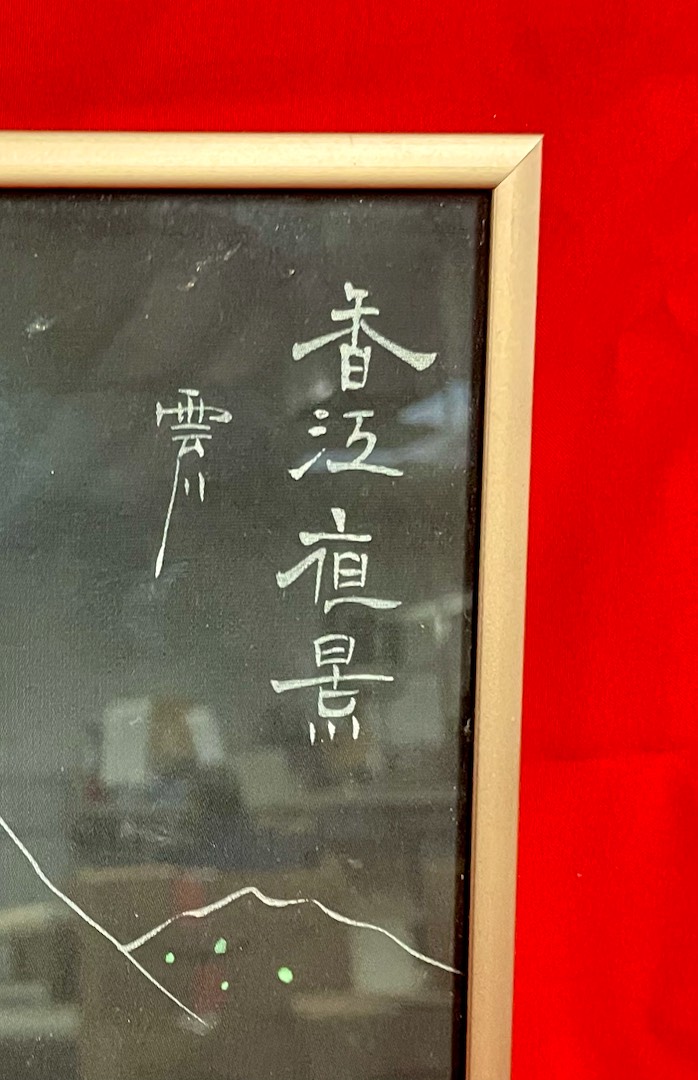 香江夜景
雲川